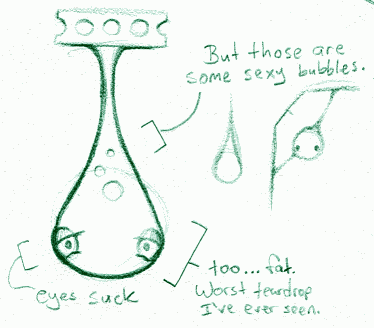 But those are
some sexy bubbles.
eyes suck
too... fat.
Worst teardrop
I've ever seen.